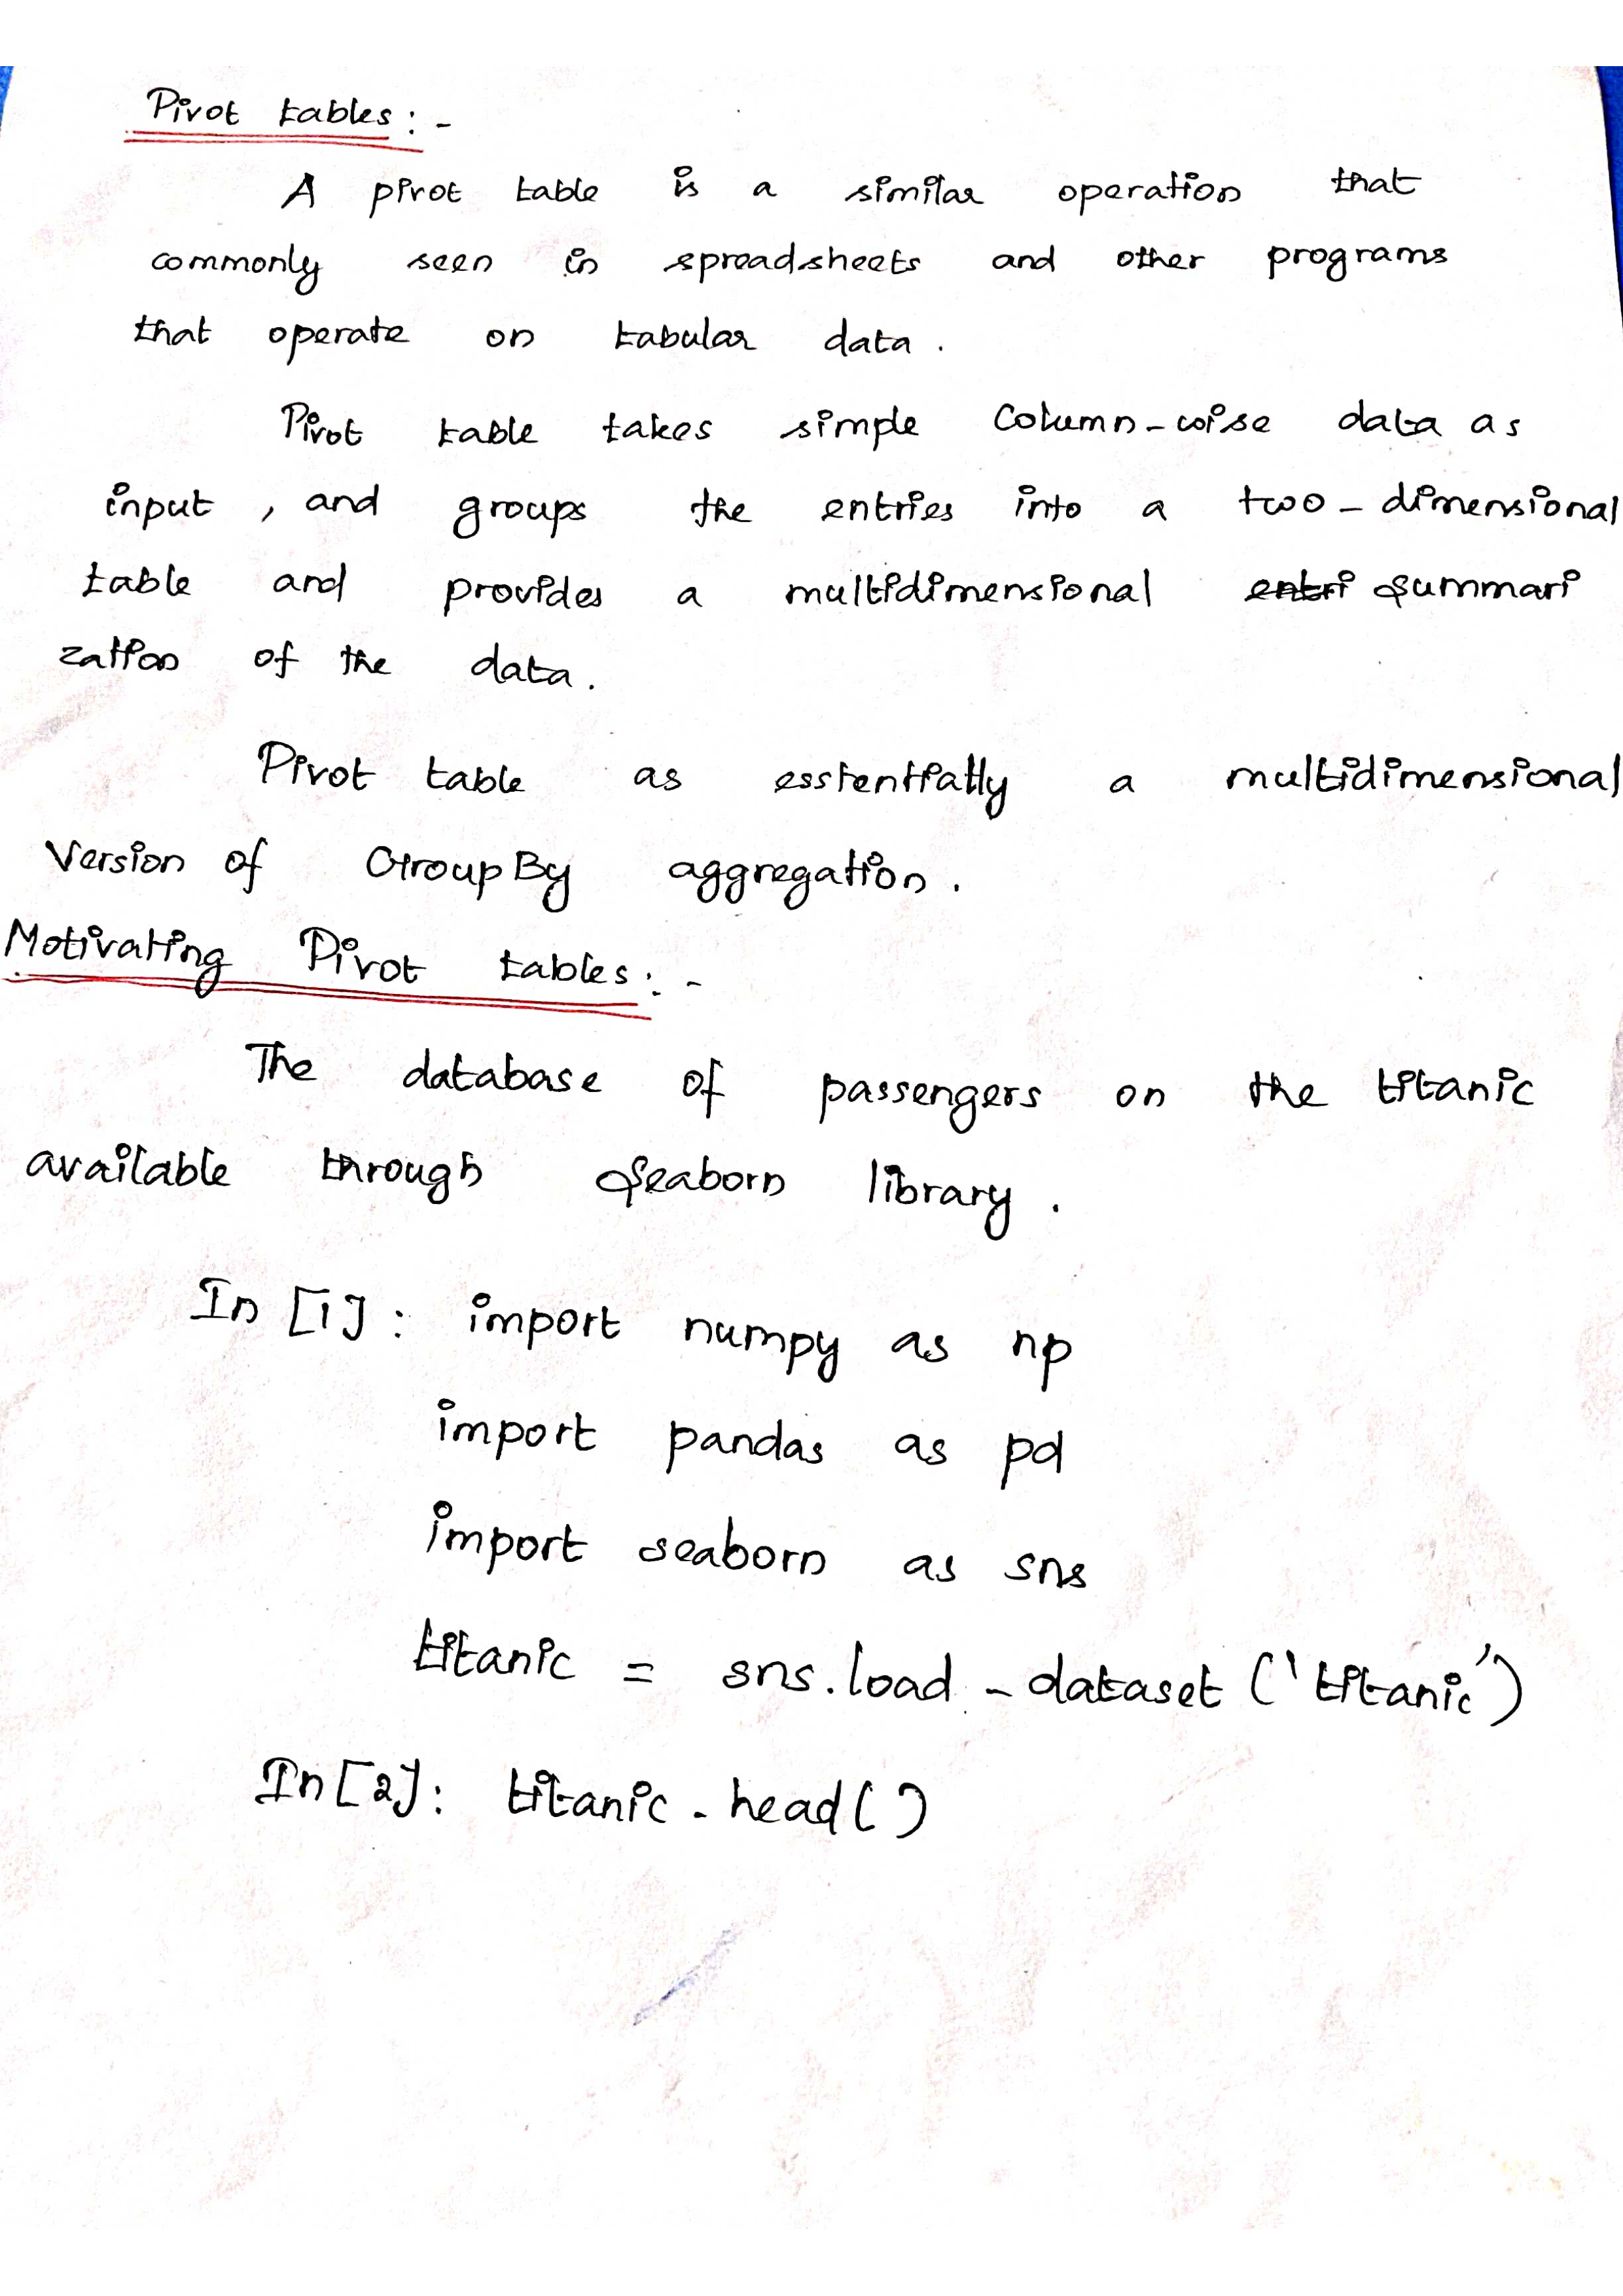 Pivot tables:-
A pivot table is a similar operation that
commonly seen in spreadsheets and other programs
that operate on tabular data.
Pivot table takes simple Column-wise data as
input, and groups the entries into a two-dimensional
table and provides a multidimensional entri summari
zation of the data.
Pivot table as esstentially a multidimensional
Version of GroupBy aggregation.
Motivating Pivot tables:-
The database of passengers on the titanic
available through Seaborn library.
In [1]: import numpy as np
import pandas as pd
import seaborn as sns
titanic = sns.load_dataset('titanic')
In[2]: titanic.head()